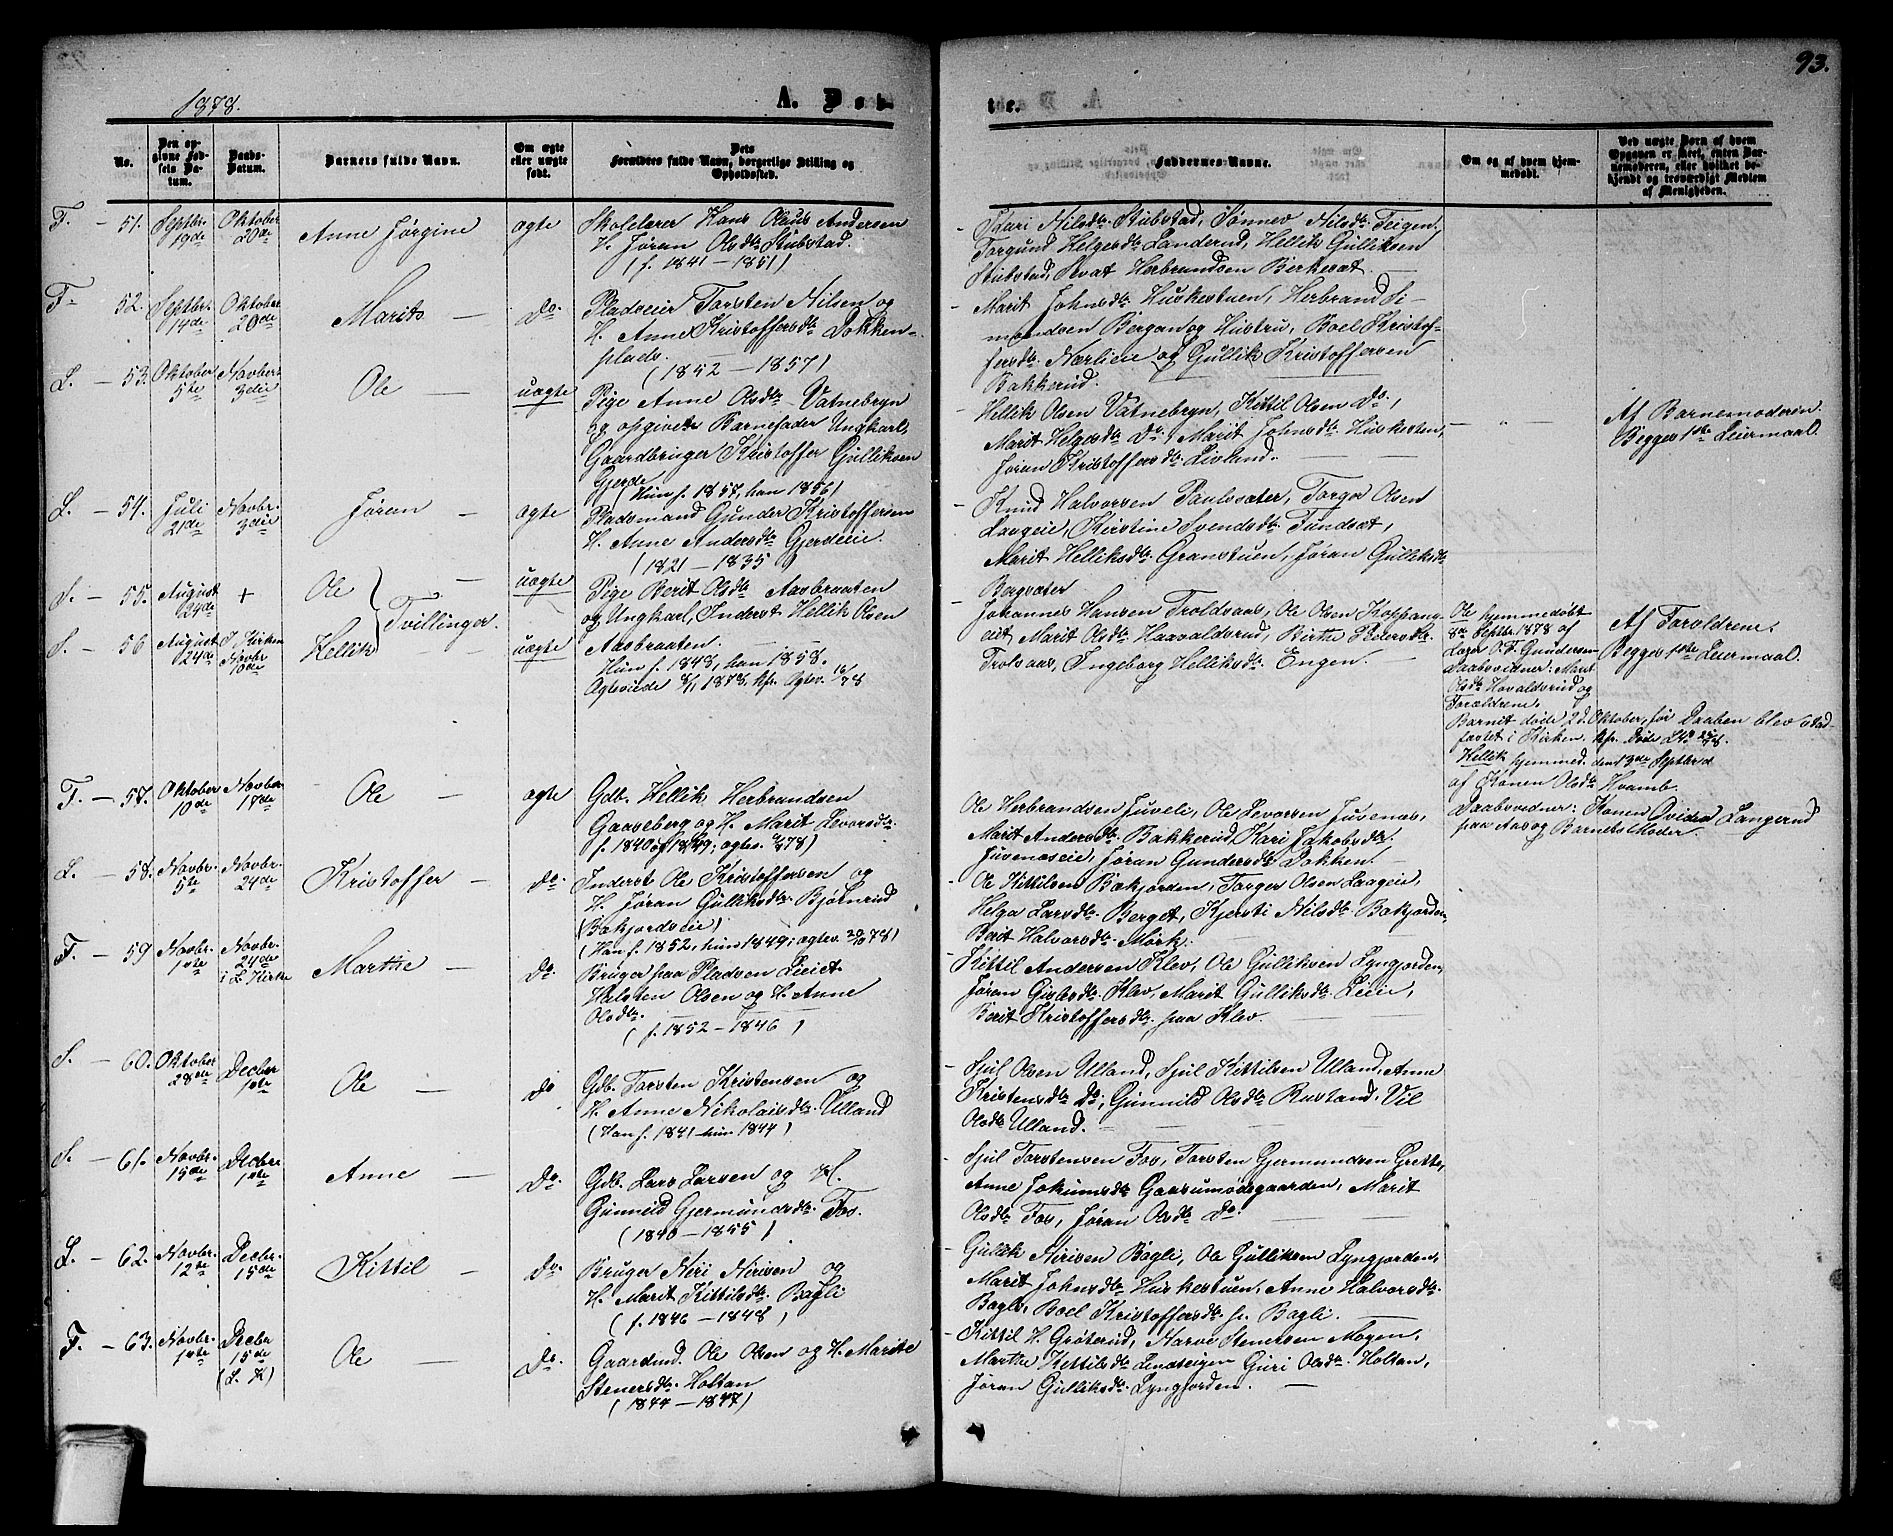 93.
1878.
A. Døb-
te.
No.
Den op-
givne Fød-
sels Da-
tum.
Daabs-
Datum.
Barnets fulde Navn.
Om ægte
eller uægte
født.
Dets
Forældres fulde Navn, borgerlige Stilling og
Opholdssted.
Faddernes Navne.
Om og af hvem hjem-
medøbt.
Ved uægte Børn af hvem
Opgaven er skeet, enten Bar-
nemoderen, eller hvilket be-
kjendt og troværdigt Medlem
af Menigheden.
F. — 51. Septbr. 19de
Oktober 20de
Anne Jørgine
ægte
Skolelærer Hans Olaus Andersen
H. Jøran Olsdtr Stubstad.
(f. 1841 — 1851)
Kari Nilsdtr Stubstad, Sønnev Nilsdtr Teigen,
Torgund Helgesdtr Landerud, Hellik Gulliksen
Stubstad, Sevat Herbrandsen Berkesæt. —
F. — 52. Septbr. 14de
Oktober 20de
Marit —
Do.
Pladseier Torsten Nilsen og
H. Anne Kristoffersdtr Dokken-
plads. —
(1852 — 1857)
Marit Johnsdtr Huskestuen, Herbrand Si-
mondsen Bergan og Hustru, Boel Kristof-
fersdtr Nærlieie og Gullik Kristoffersen
Bakkerud.
L. — 53. Oktober 5te
Novber. 3die
Ole —
uægte
Pige Anne Olsdtr Vatnebryn
og opgivet Barnefader Ungkarl,
Gaardbruger Kristoffer Gulliksen
Gjerde
(Hun f. 1857, han 1856)
Hellik Olsen Vatnebryn, Kittil Olsen Do,
Marit Helgesdtr Do, Marit Johnsdtr Husketuen,
Jøran Kristoffersdtr Livland. —
Af Barnemoderen.
Begges 1ste Leiermaal.
L. — 54. Juli 21de
Novbr. 3die
Jøran —
ægte
Pladsmand Gunder Kristoffersen
H. Anne Andersdtr Gjerdeie
(1821 — 1835)
Knud Halvorsen Paulsæter, Torger Olsen
Laageie, Kirstine Svendsdtr Tundsæt,
Marit Helliksdtr Granstuen, Jøran Gulliksdtr
Bergsæter
S. — 55. August 24de
+
Ole —
uægte
Pige Berit Olsdtr Aasbraaten
og Ungkarl, Inderst Hellik Olsen
Aasbraaten. —
Hun f. 1848, han 1858.
Johannes Hansen Troldsaas, Ole Olsen Koppang-
eit, Marit Olsdtr Haavaldsrud, Birthe Pedersdtr
Trolsaas, Ingeborg Helliksdtr Engen. —
Ole hjemmedøbt
8de Septbr. 1878 af
Lærer O. T. Gundersen
Daabsvidner: Marit
Olsdtr Hovaldsrud og
Forældrene.
Barnet døde 2d. Oktober, før Daaben blev stad-
fæstet i Kirken.
Hellik hjemmed. den 13de Septbr
af Konen Olsdtr Hvamb.
paa Aas og Barnets Moder.
Af Forældrene.
Begges 1ste Leiermaal.
S. — 56 August 24de
I Kirken Novbr 10de
Hellik
Tvillinger.
uægte
F. — 57. Oktober 10de
Novber 17de
Ole —
ægte
Gdb. Hellik Herbrandsen
Gaaseberg og H. Marit Levorsdtr.
Ole Herbrandsen Juveli, Ole Levorsen Juvenæs,
Marit Andersdtr Bakkerud, Kari Jakobsdtr
Juvenæseie, Jøran Gundersdtr Dokken. —
L. — 58. Novbr. 5te
Novbr. 24de
Kristoffer —
Do.
Inderst Ole Kristoffersen og
H. Jøran Gulliksdtr Bjørnrud
(Bækjordseie)
(Han f. 1852, hun 1849; ægtev. 20/10 78)
Ole Kittilsen Bækjorden, Torger Olsen Laageie,
Helga Larsdtr. Berget, Kjersti Nilsdtr Bækjorden,
Berit Halvorsdtr. Mørk.
F. — 59 Novbr. 1ste
Novbr. 24de i L. Kirke
Marthe —
Do.
Bruger paa Pladsen Lieiet
Halsten Olsen og H. Anne
Olsdtr. —
(f. 1852 — 1846)
Kittil Andersen Klev, Ole Gulliksen Lyngjorden,
Jøran Gislesdtr Klev, Marit Gulliksdtr Lieie,
Berit Kristoffersdtr. paa Klev.
S. — 60. Oktober 28de
Decbr 1ste
Ole —
Do
Gdb. Torsten Kristensen og
H. Anne Nikolaisdtr. Ulland
(Han f. 1841 — hun 1844)
Sjul Olsen Ulland, Sjul Kittilsen Ulland, Anne
Kristensdtr Do, Gunnild Olsdtr Rustand, Vil
Olsdtr Ulland. —
S. — 61. Novbr. 15de
Decbr 1ste
Anne —
Do.
Gdb. Lars Larsen og H.
Gunneid Gjermundsdtr. Fos.
(1840 — 1855)
Sjul Torstensen Fos, Torsten Gjermundsen Grette,
Anne Jokumsdtr Gaasumodegaarden, Marit
Olsdtr Fos, Jøran Olsdtr Do. —
L. — 62. Novbr. 12te
Decbr. 15de
Kittil —
Do.
Bruger Neri Nerisen og
H. Marit Kittilsdtr. Bagli
(f. 1846 — 1848)
Gullik Nerisen Bagli, Ole Gulliksen Lyngjorden,
Marit Johnsdtr. Huskestuen, Anne Halvorsdtr.
Bagli, Boel Kristoffersdtr. Bagli. —
F. — 63. Novbr. 1ste
Decbr 15de (L. K)
Ole —
Do.
Gaardmd. Ole Olsen og H. Marthe
Stenersdtr. Holtan
(1844 — 1847)
Kittil H. Grøterud, Narve Stenersen Mogen,
Marthe Kittilsdtr Lindteigen, Guri Olsdtr. Holtan,
Jøran Gulliksdtr. Lyngjorden. —